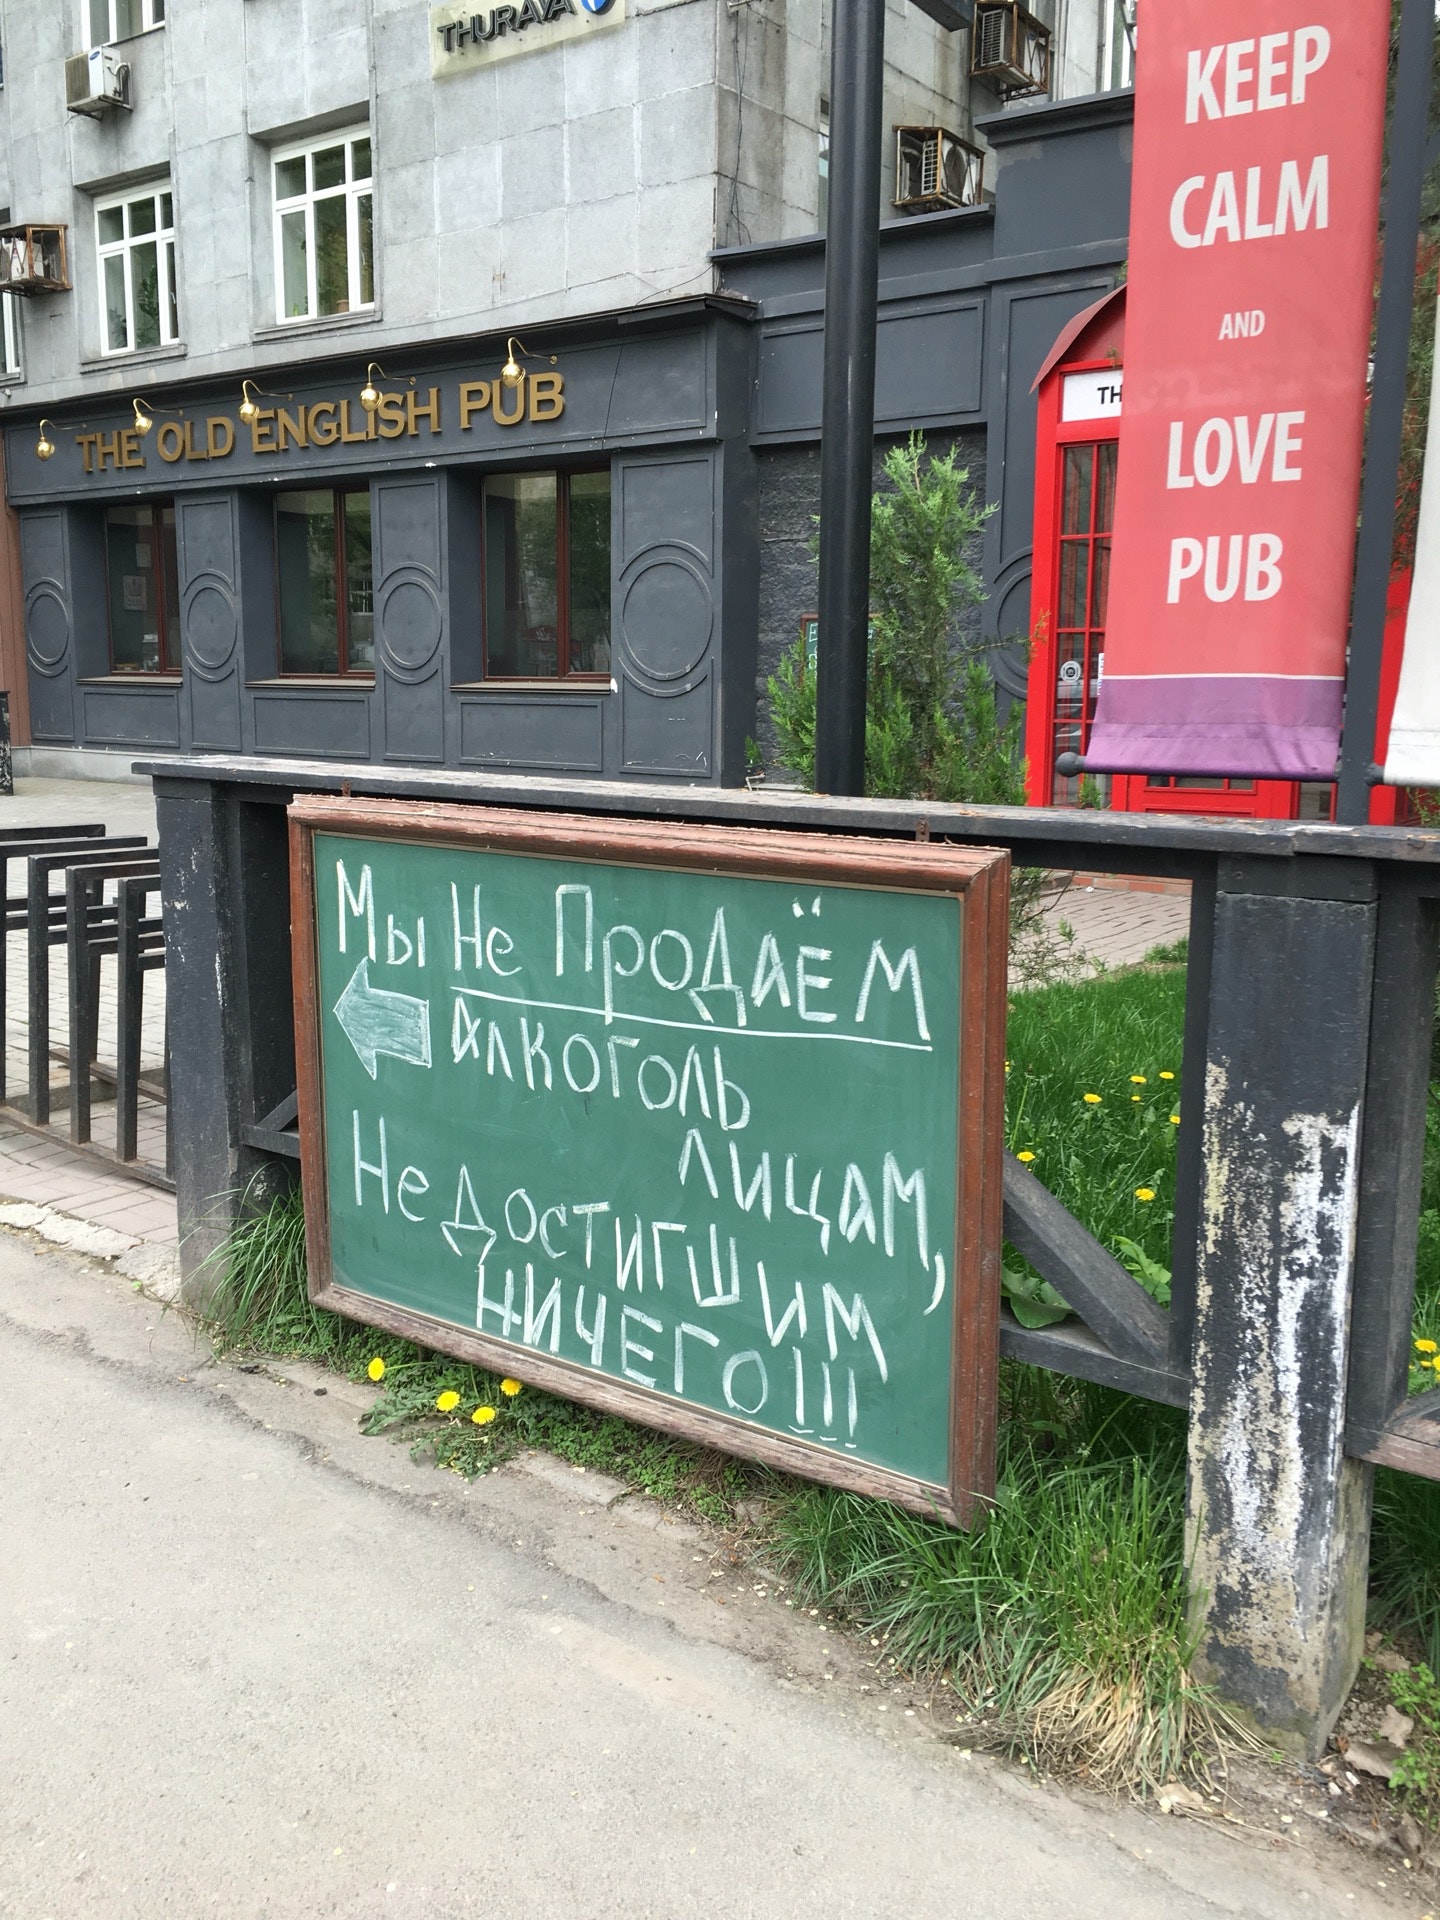 THURAYA
THE OLD ENGLISH PUB
KEEP
CALM
AND
LOVE
PUB
TH
Мы Не Продаём
алкоголь
лицам,
Не достигшим
ничего!!!